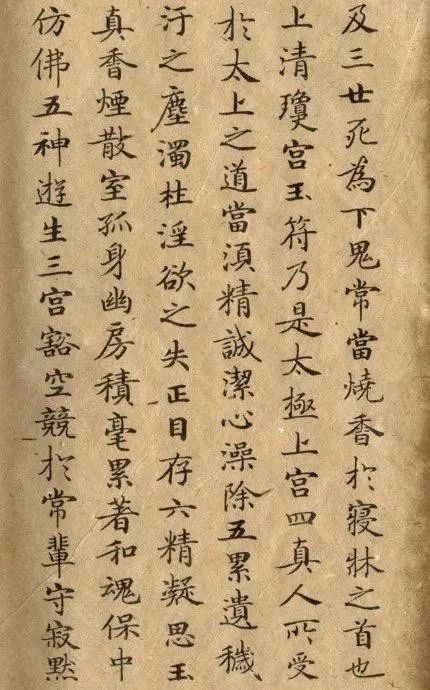 及三廿死為下鬼常當燒香於寢牀之首也
上清瓊宮玉符乃是太極上宮四真人所受
於太上之道當湏精誠潔心澡除五累遺穢
汙之塵濁杜淫欲之失正目存六精凝思玉
真香煙散室孤身幽房積毫累著和魂保中
仿佛五神遊生三宮豁空競於常輩守寂默